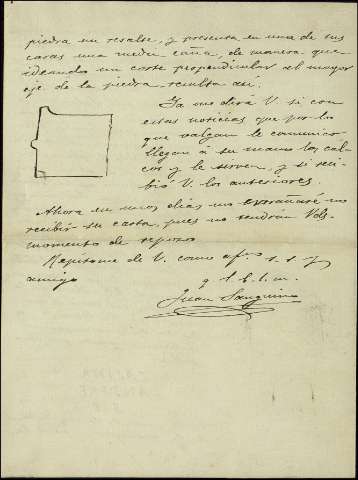 piedra un resalte, y presenta en una de sus
caras una media caña, de manera que
ideando un corte perpendicular al mayor
eje de la piedra resulta así.
Ya me dirá V. si con
estas noticias que por lo
que valgan le comunico
llegan á su mano los cal-
cos y le sirven, y si reci-
bió V. los anteriores.
Ahora en unos dias no extrañaré no
recibir su carta, pues no tendrán Vds.
momento de reposo
Repitome de V. como afmo. s. s. y
amigo
q. s. b. l. m.
Juan Sanguino